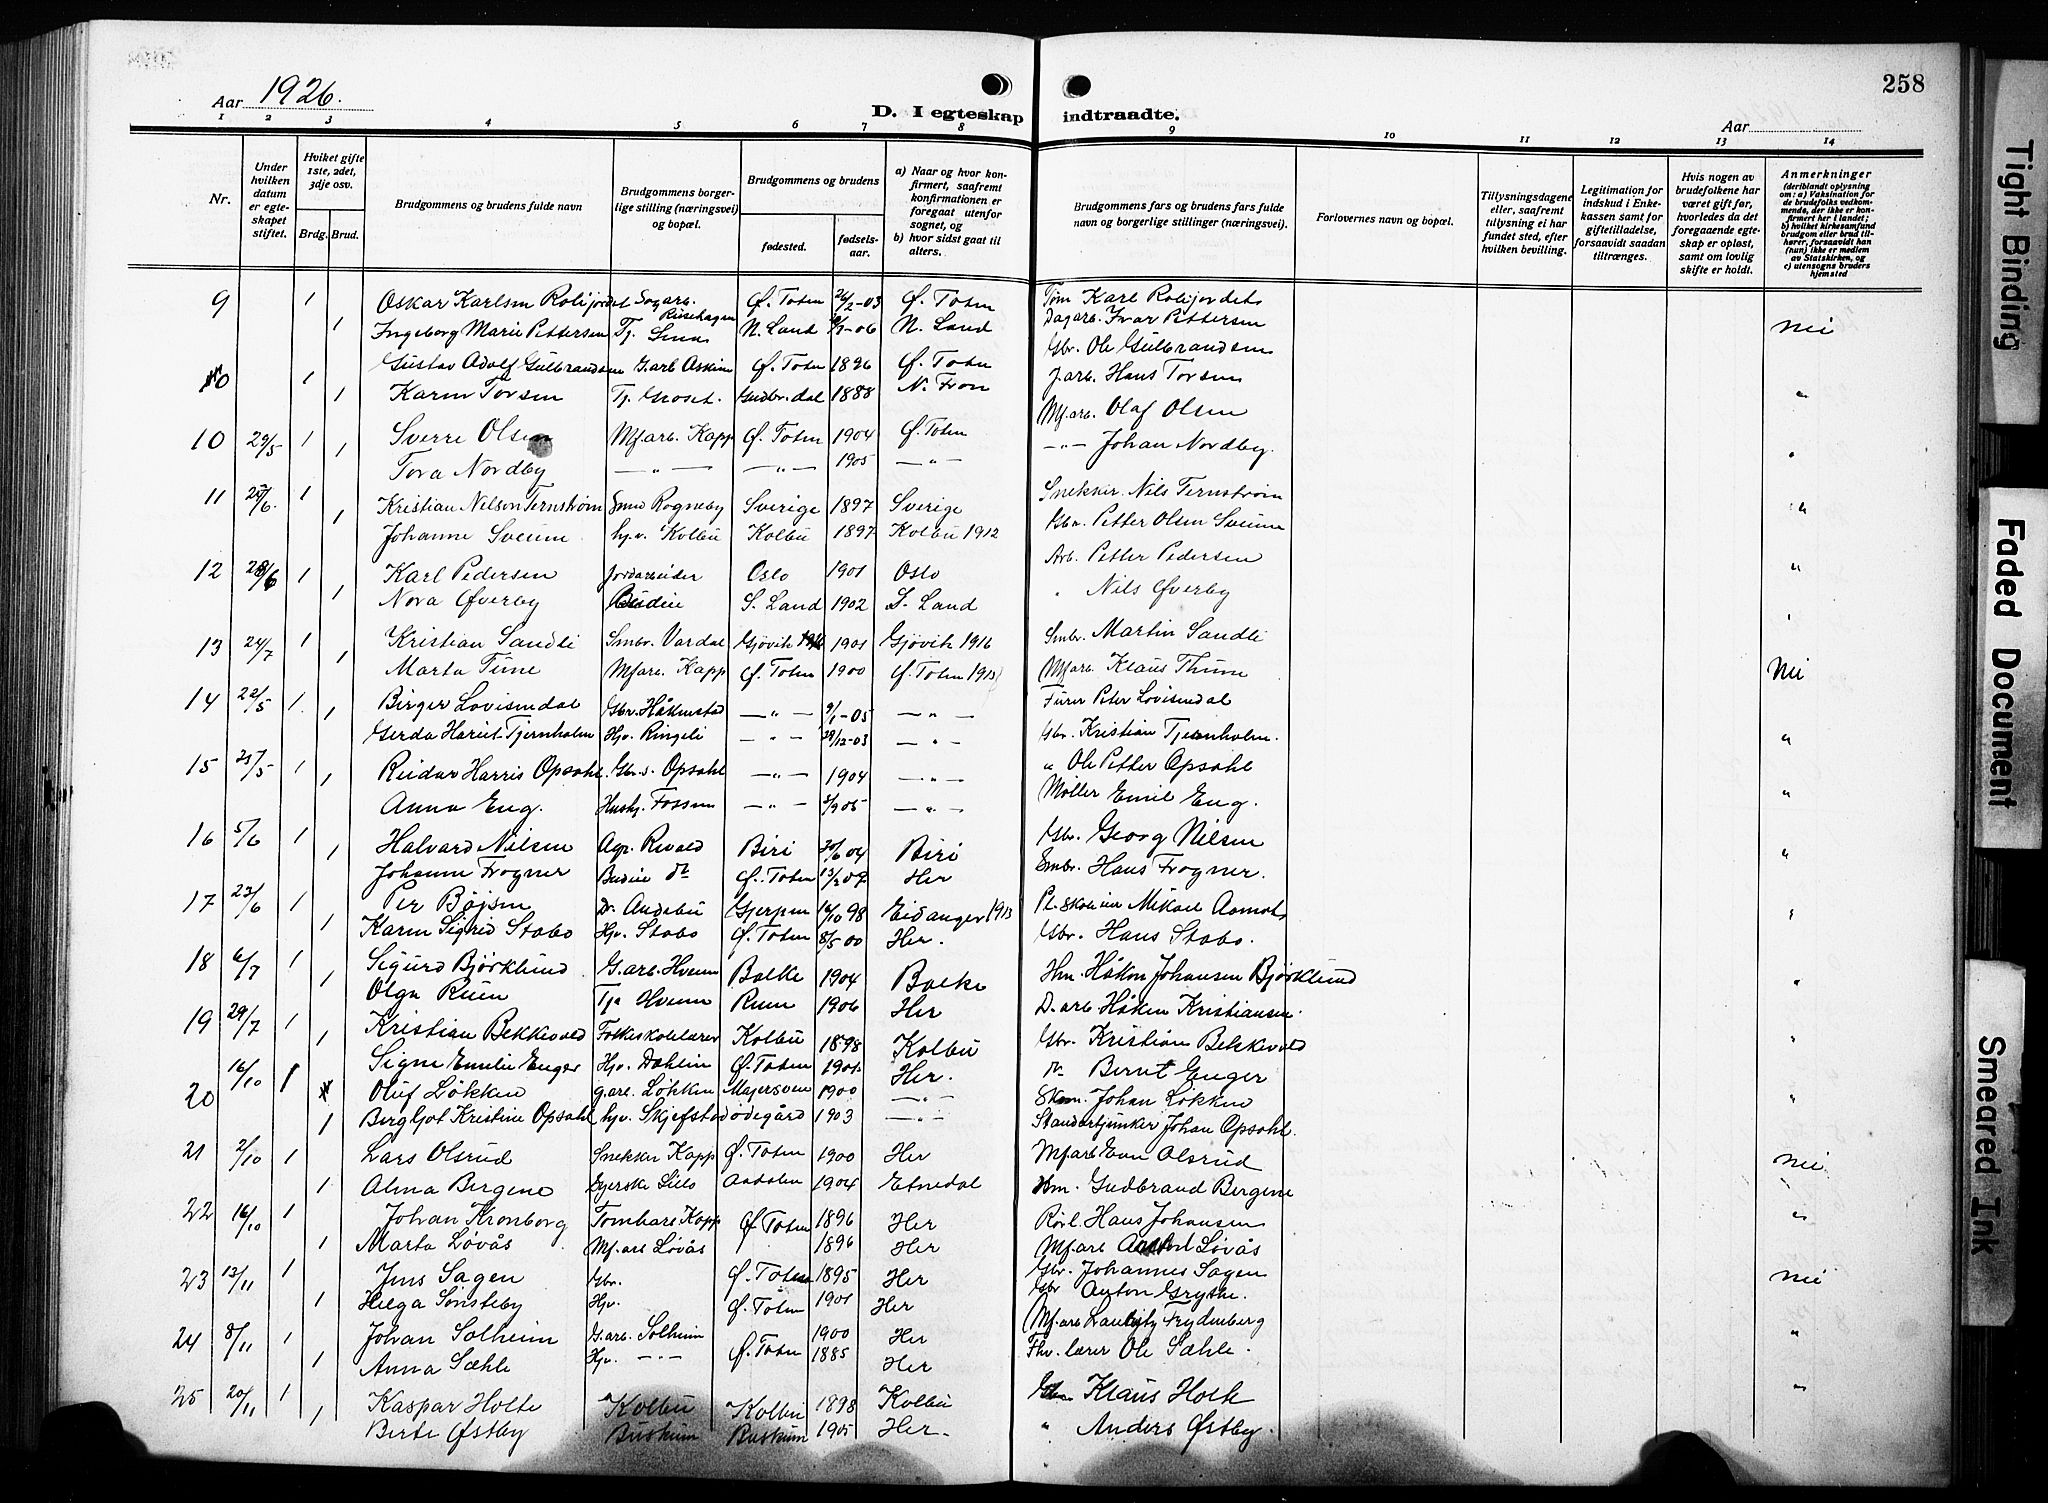 258
Aar 1926.
D. I egteskap indtraadte.
Aar
1 2 3 4 5 6 7 8 9 10 11 12 13 14
Nr.
Under hvilken datum er egteskapet stiftet.
Hviket gifte 1ste, 2det, 3dje osv.
Brdg. Brud.
Brudgommens og brudens fulde navn
Brudgommens borgerlige stilling (næringsvei) og bopæl.
Brudgommens og brudens
fødested.
fødselsaar.
a) Naar og hvor konfirmert, saafremt konfirmationen er foregaat utenfor sognet, og
b) hvor sidst gaat til alters.
Brudgommens fars og brudens fars fulde navn og borgerlige stillinger (næringsvei).
Forlovernes navn og bopæl.
Tillysningsdagene eller, saafremt tillysning ei har fundet sted, efter hvilken bevilling.
Legitimation for indskud i Enkekassen samt for giftetilladelse, forsaavidt saadan tiltrænges.
Hvis nogen av brudefolkene har været gift før, hvorledes da det foregaaende egteskap er opløst, samt om lovlig skifte er holdt.
Anmerkninger (deriblandt oplysning om: a) Vaksination for de brudefolks vedkommende, der ikke er konfirmert her i landet; b) hvilket kirkesamfund brudgom eller brud tilhører, forsaavidt han (hun) ikke er medlem av Statskirken, og c) utensogns bruders hjemsted
9 1 Oskar Karlsen Ø. Toten 26/2-03 Ø. Toten Karl
1 Ingeborg Marie Pettersen Tj. N. Land -06 N. Land Dagarb. Ivar Pettersen nei
10 1 Gustav Adolf Gulbrandsen G.arb Askim Ø. Toten 1896 Ø. Toten Gbr. Ole Gulbrandsen
1 Karen Torsen Tj. Grøset. Gudbr.dal 1888 N. Fron J.arb. Hans Torsen "
10 29/5 1 Sverre Olsen Mf.arb. Kapp Ø. Toten 1904 Ø. Toten Mf.arb. Olaf Olsen
1 Tora Nordby — " — — " — 1905 — " — — " — Johan Nordby. "
11 1 Kristian Nilsen Ternstrøm Smed Rogneby Sverige 1897 Sverige Snekker. Nils Ternstrøm
1 Johanne Sveum hj.v. Kolbu Kolbu 1897 Kolbu 1912 Gbr. Petter Olsen Sveum "
12 28/6 1 Karl Pedersen Jordarbeider Oslo 1901 Oslo Arb. Petter Pedersen
1 Nora Øverby Budeie S. Land 1902 S. Land " Nils Øverby "
13 24/7 1 Kristian Sandli Smbr. Vardal Gjøvik 1901 Gjövik 1916 Smbr. Martin Sandli
1 Marta Tune Mfarb. Kapp Ø. Toten 1900 Ø. Toten 1915 Mfarb. Klaus Thune nei
14 22/5 1 Birger Lovisendal Gbr. Håkenstad — " — 9/1-05 — " — Furer Peter Lovisendal
1 Gerda Tjernholm Hjv. Ringeli — " — 29/12-03 — " — Gbr. Kristian Tjernholm. "
15 25/5 1 Reidar Harris Opsahl Gbr.s. Opsahl — " — 1904 — " — " Ole Petter Opsahl
1 Anna Eng. Hushj. Fossen — " — 5/9 05 — " — Møller Emil Eng. "
16 5/6 1 Halvard Nilsen Agr. Biri 04 Biri Gbr. Georg Nilsen
1 Johanne Frogner Budeie do Ø. Toten 13/2 Her Smbr. Hans Frogner. "
17 23/6 1 Per Bøjsen Dr. Andebu Gjerpen 16/10 98 Eidanger 1913 Mikael Aamot
1 Karen Sigrid Stabo Hjv. Stabo Ø. Toten 8/5 00 Her. Gbr. Hans Stabo. "
18 6/7 1 Sigurd Bjørklund G.arb. Hveem Balke 1904 Balke Hm. Håkon Johansen Bjørklund
1 Olga Ruen Tj. Hveem Ruen 1906 Her D.arb Håken Kristiansen. "
19 29/7 1 Kristian Bekkevold Folkeskolelærer Kolbu 1898 Kolbu Gbr. Kristian Bekkevold
1 Signe Emilie Enger Hjv. Dahlein Ø. Toten 1901 Her. Bernt Enger "
20 16/10 1 Oluf Løkken g.arb. Løkken Majersveen 1900 — " — Johan Løkken
1 Bergljot Kristine Opsahl hjv. Skjefstad ødegård 1903 — " — Standartjunker Johan Opsahl. "
21 2/10 1 Lars Olsrud Snekker Kapp Ø. Toten 1900 Her Mfarb Even Olsrud
1 Alma Bergene Aadalen 1904 Etnedal Hm. Gudbrand Bergene nei
22 16/10 1 Johan Kronborg Kapp Ø. Toten 1896 Her Rørl. Hans Johansen
1 Marta Løvås Mf.arb Løvås 1896 Her Mfarb Løvås "
23 13/11 1 Jens Sagen Gbr. Ø. Toten 1895 Her Gbr. Johannes Sagen
1 Helga Sønsteby Hjv. Ø. Toten 1901 Her Gbr Anton Grythe. nei
24 8/11 1 Johan Solheim G.arb. Solheim Ø. Toten 1900 Her Mf.arb Frydenberg
1 Anna Sæhle Hjv. — " — 1885 Her Fhv. lærer Ole Sæhle. "
25 20/11 1 Kaspar Holte Kolbu Kolbu 1898 Kolbu Klaus Holte
1 Berte Østby Buskum Buskum 1905 Her. " Anders Østby. "
Tight Binding
Faded Document
Smeared Ink